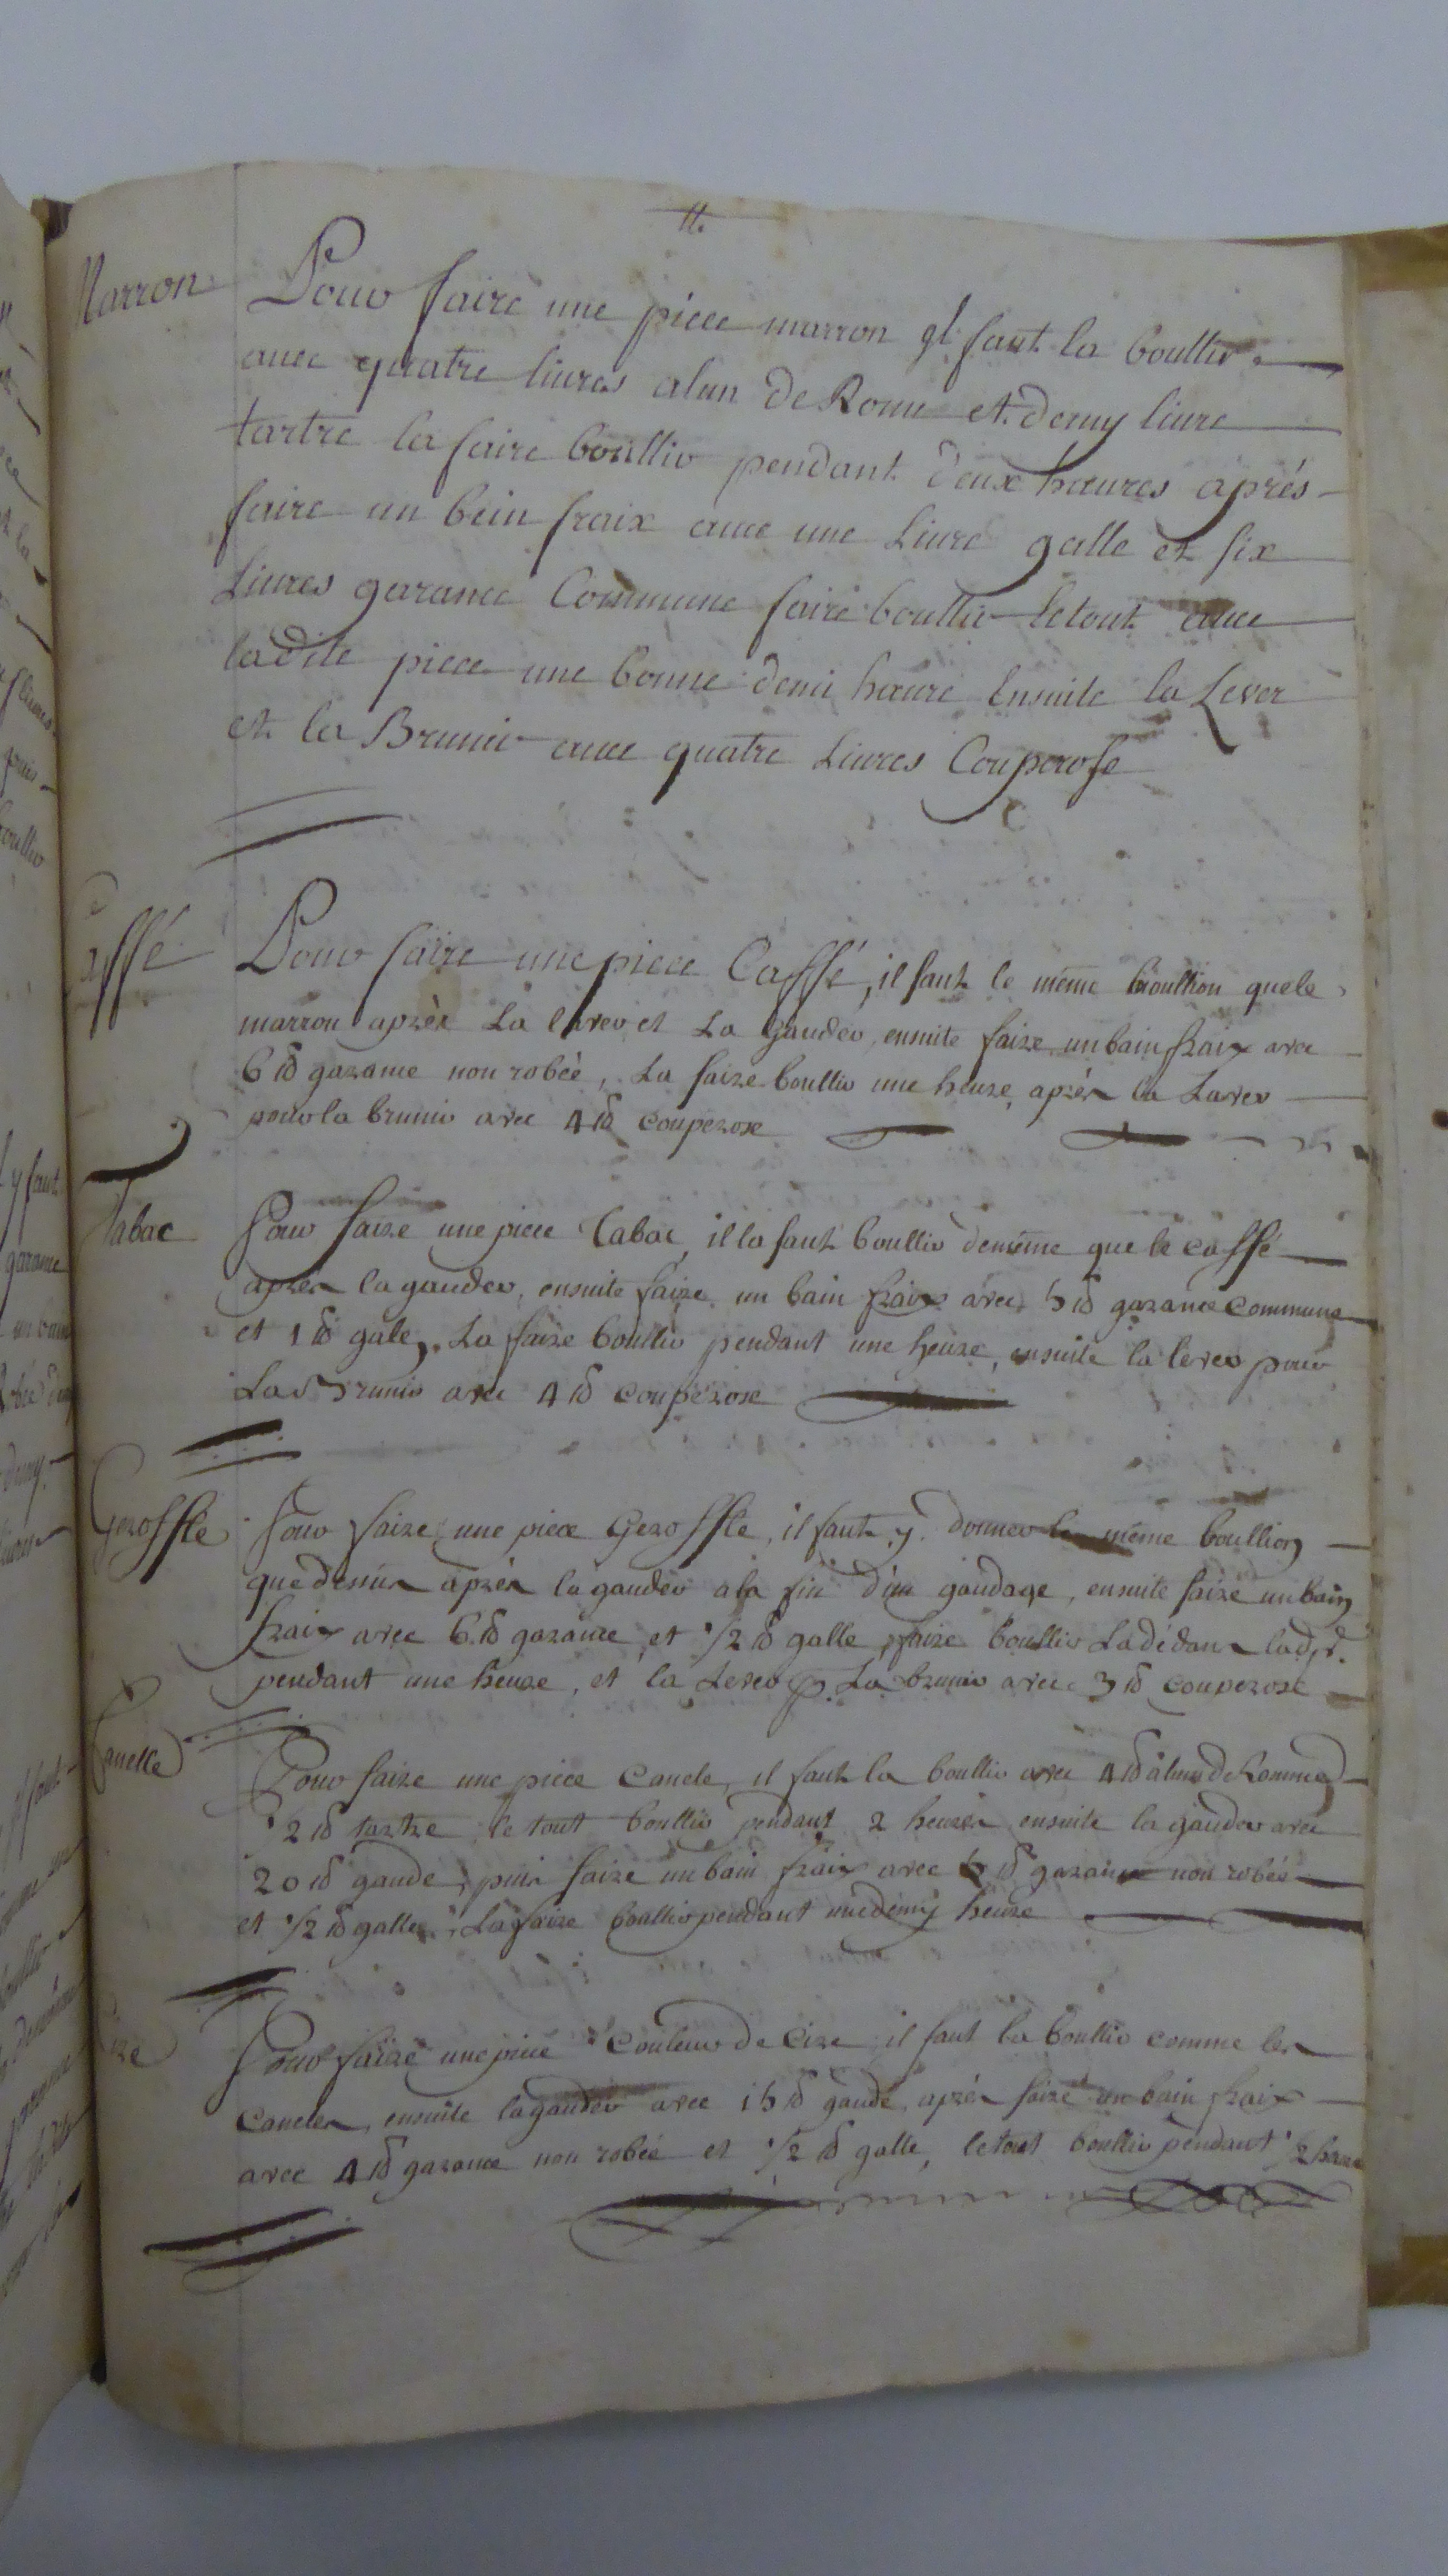 11.
Marron
Pour faire une piece marron jl faut la boullir
avec quatre livres alun de Rome et demy livre
tartre la faire boullir pendant deux heures aprés
faire un bein fraix avec une Livre galle et six
Livres garance Commune faire boullir le tout avec
ladite piece une bonne demi heure Ensuite la Lever
et la Brunir avec quatre Livres Couperose
Caffé
Pour faire une piece Caffé, il faut le même boullion que le
marron aprèz La laver et La Gauder, ensuite faire un bain fraix avec
6 lb garance non robée, La faire boullir une heure, après la Laver
pour la brunir avec 4 lb couperose
Tabac
Pour faire une piece Tabac, il la faut boullir demême que le caffé
après la gauder, ensuite faire un bain fraix avec 5 lb garance commune
et 1 lb gale, La faire boullir pendant une heure, ensuite la lever pour
La Brunir avec 4 lb couperose
Geroffle
Pour faire une piece Geroffle, il faut y donner le même boullion
que dessus après la gauder a la fin d'un gaudage, ensuite faire un bain
fraix avec 6 lb garance, et 1/2 lb galle, faire boullir La dédans lad. p.
pendant une heure, et la Lever p. La brunir avec 3 lb couperose
Canelle
Pour faire une piece Canele, il faut la boullir avec 4 lb alun de Romme
1/2 lb tartre, le tout boullir pendant 2 heures ensuite la gauder avec
20 lb gaude, puis faire un bain fraix avec 5 lb garance non robée
et 1/2 lb galle, La faire boullir pendant une demy heure
Cire
Pour faire une piece Couleur de Cire, il faut la boullir comme les
Caneles, ensuite la gauder avec 15 lb gaude, après faire un bain fraix
avec 4 lb garance non robée et 1/2 lb galle, le tout boullir pendant 1/2 heure